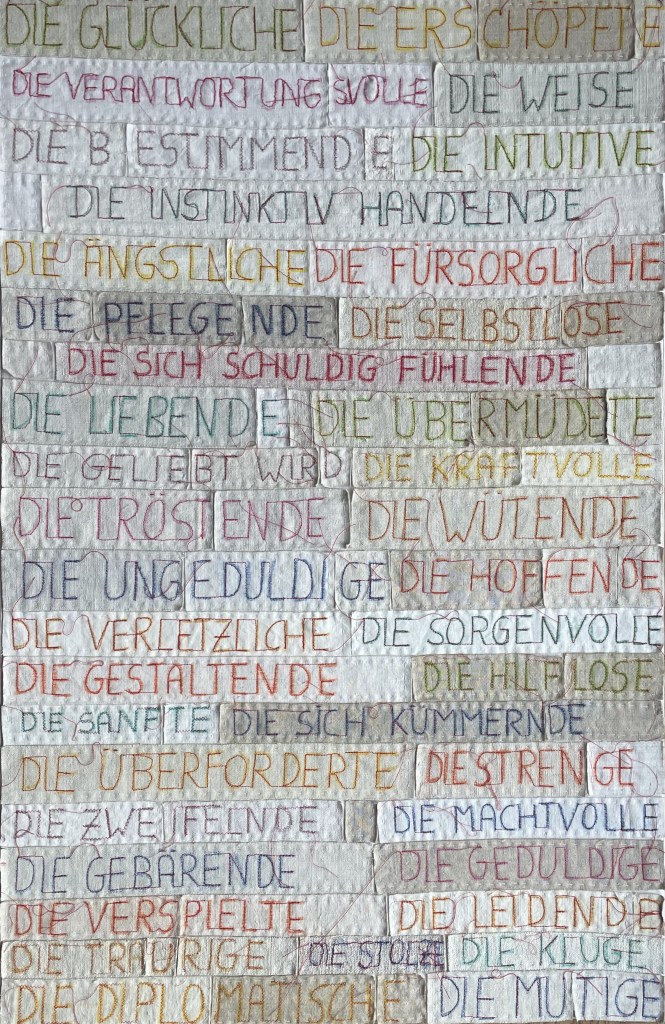 DIE GLÜCKLICHE DIE ERSCHÖPFTE
DIE VERANTWORTUNGSVOLLE DIE WEISE
DIE BESTIMMENDE DIE INTUITIVE
DIE INSTINKTIV HANDELNDE
DIE ÄNGSTLICHE DIE FÜRSORGLICHE
DIE PFLEGENDE DIE SELBSTLOSE
DIE SICH SCHULDIG FÜHLENDE
DIE LIEBENDE DIE ÜBERMÜDETE
DIE GELIEBT WIRD DIE KRAFTVOLLE
DIE TRÖSTENDE DIE WÜTENDE
DIE UNGEDULDIGE DIE HOFFENDE
DIE VERLETZLICHE DIE SORGENVOLLE
DIE GESTALTENDE DIE HILFLOSE
DIE SANFTE DIE SICH KÜMMERNDE
DIE ÜBERFORDERTE DIE STRENGE
DIE ZWEIFELNDE DIE MACHTVOLLE
DIE GEBÄRENDE DIE GEDULDIGE
DIE VERSPIELTE DIE LEIDENDE
DIE TRAURIGE DIE STOLZE DIE KLUGE
DIE DIPLOMATISCHE DIE MUTIGE